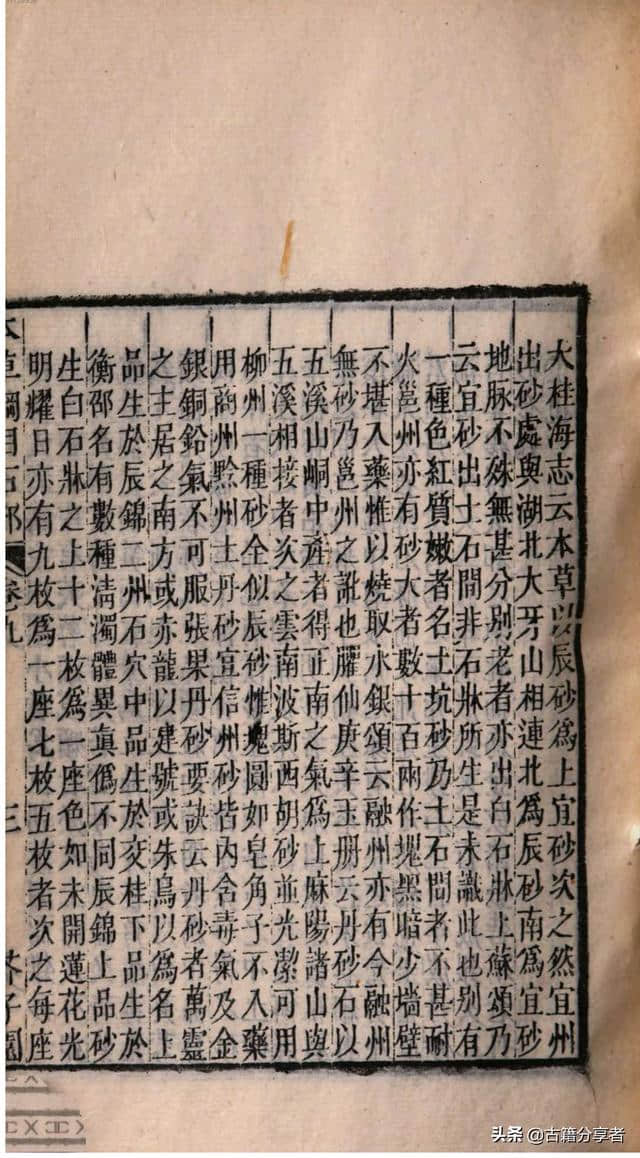 大桂海志云本草以辰砂爲上宜砂次之然宜州
出砂處與湖北大牙山相連北爲辰砂南爲宜砂
地脉不殊無甚分别老者亦出白石牀上蘇頌乃
云宜砂出土石間非石牀所生是未識此也别有
一種色紅質嫩者名土坑砂乃土石間者不甚耐
火邕州亦有砂大者數十百兩作塊黑暗少墻壁
不堪入藥惟以燒取水銀頌云融州亦有今融州
無砂乃邕州之訛也臞仙庚辛玉册云丹砂石以
五溪山峒中產者得正南之氣爲上麻陽諸山與
五溪相接者次之雲南波斯西胡砂並光潔可用
柳州一種砂全似辰砂惟塊圓如皂角子不入藥
用商州黔州土丹砂宜信州砂皆内含毒氣及金
銀銅鉛氣不可服張果丹砂要訣云丹砂者萬靈
之主居之南方或赤龍以建號或朱鳥以爲名上
品生於辰錦二州石穴中品生於交桂下品生於
衡邵名有數種清濁體異真僞不同辰錦上品砂
生白石牀之上十二枚爲一座色如未開蓮花光
明耀日亦有九枚爲一座七枚五枚者次之每座
本草綱目石部 卷九 三 芥子園
头条 @古籍分享者